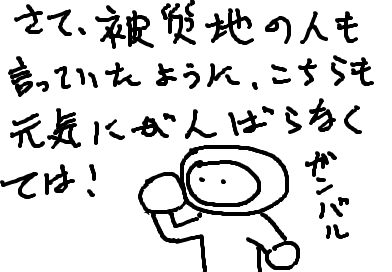 さて、被災地の人も
言っていたように、こちらも
元気にがんばらなく
ては!
ガンバル